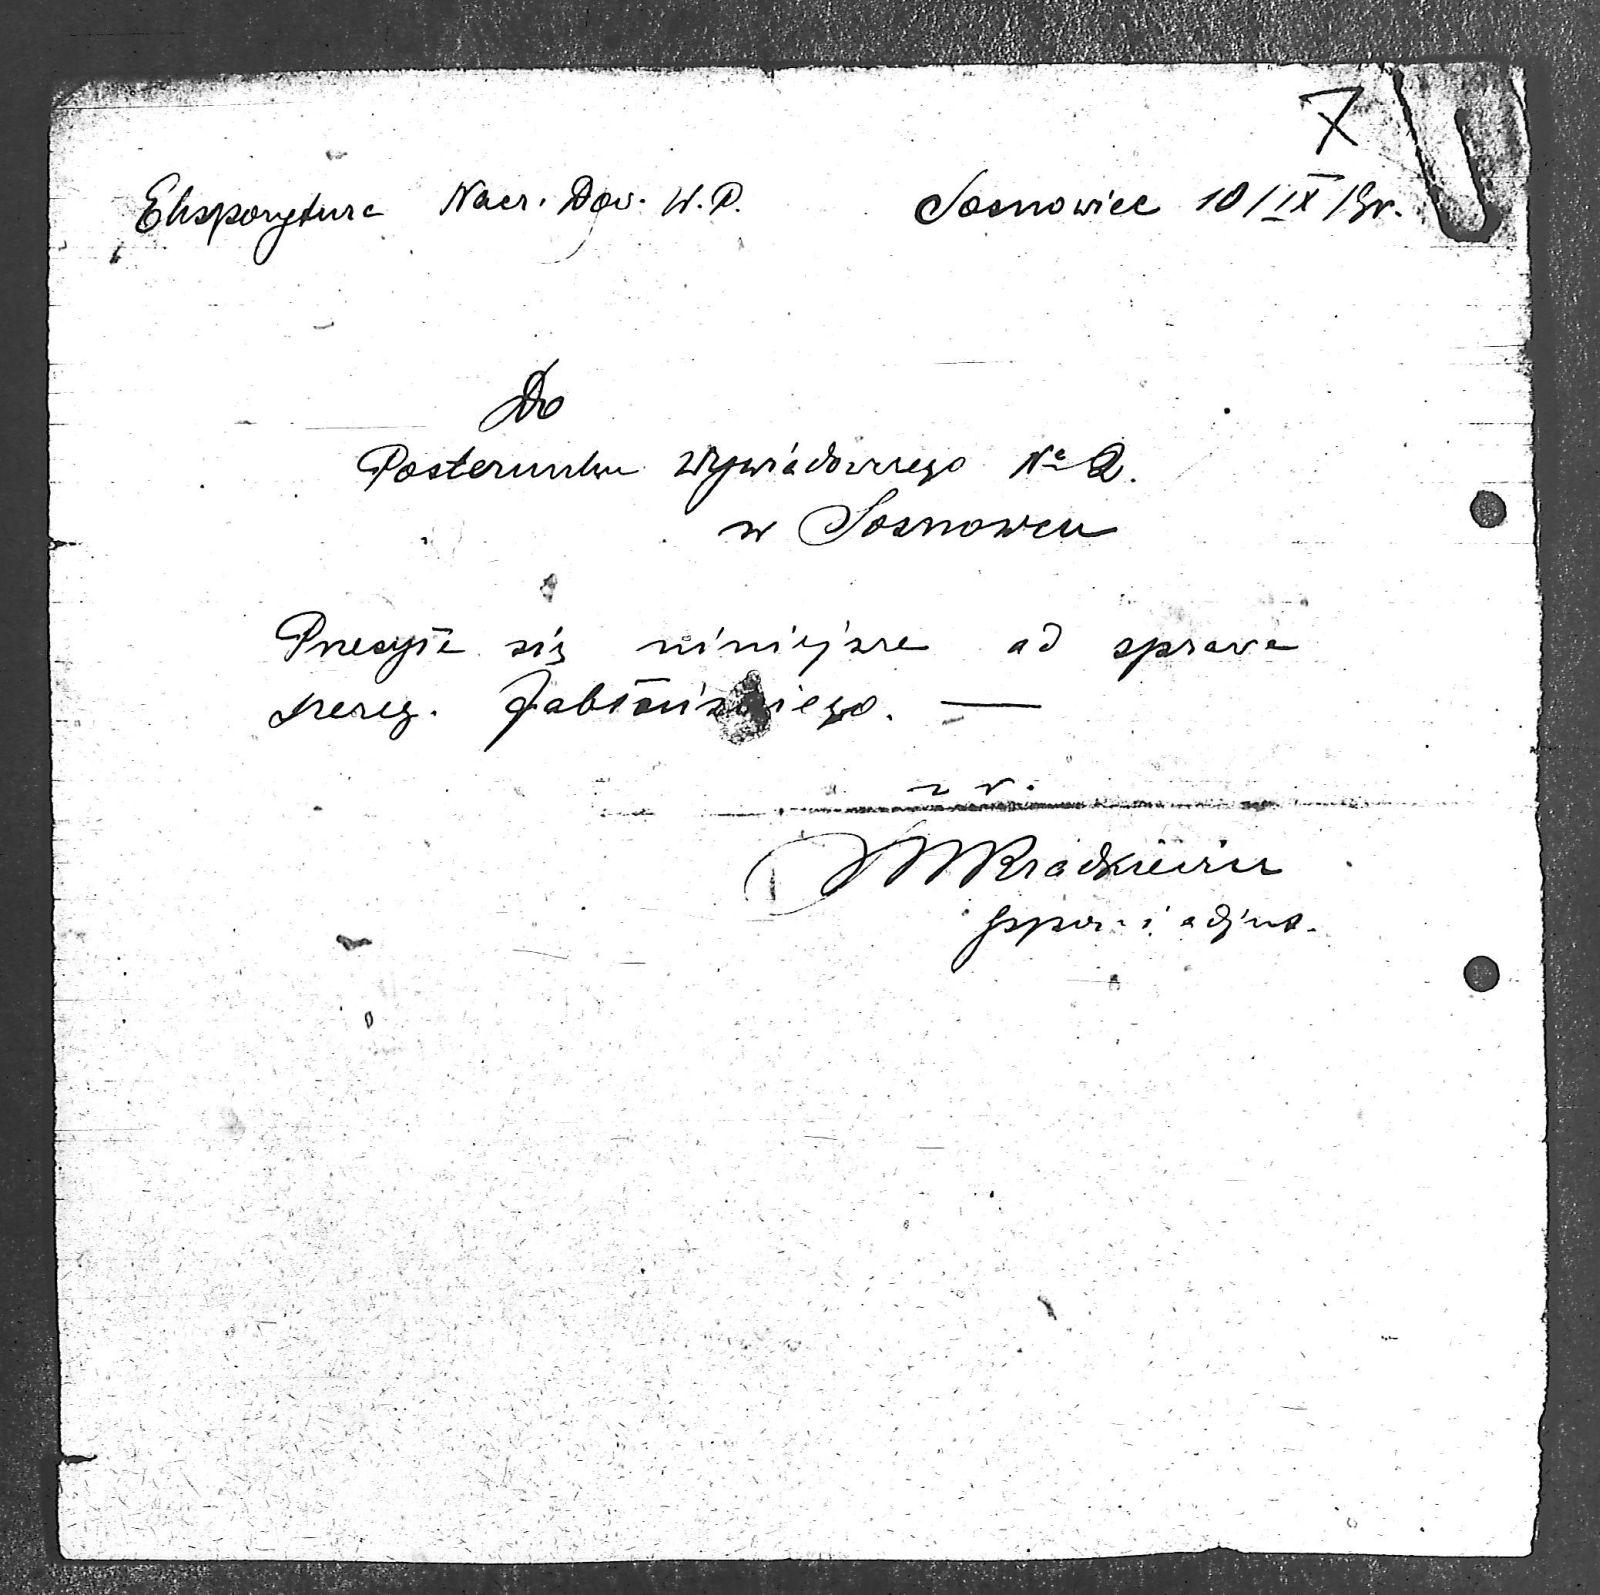 7
Ekspozytura Nacz. Dow. W. P. Sosnowiec 10/IX 19r.
Do
Posterunku Wywiadowczego № 2.
w Sosnowcu
Przesyła się niniejsze ad sprawa
szereg. Jabłońskiego. —
z r.
ppor. i adjut.